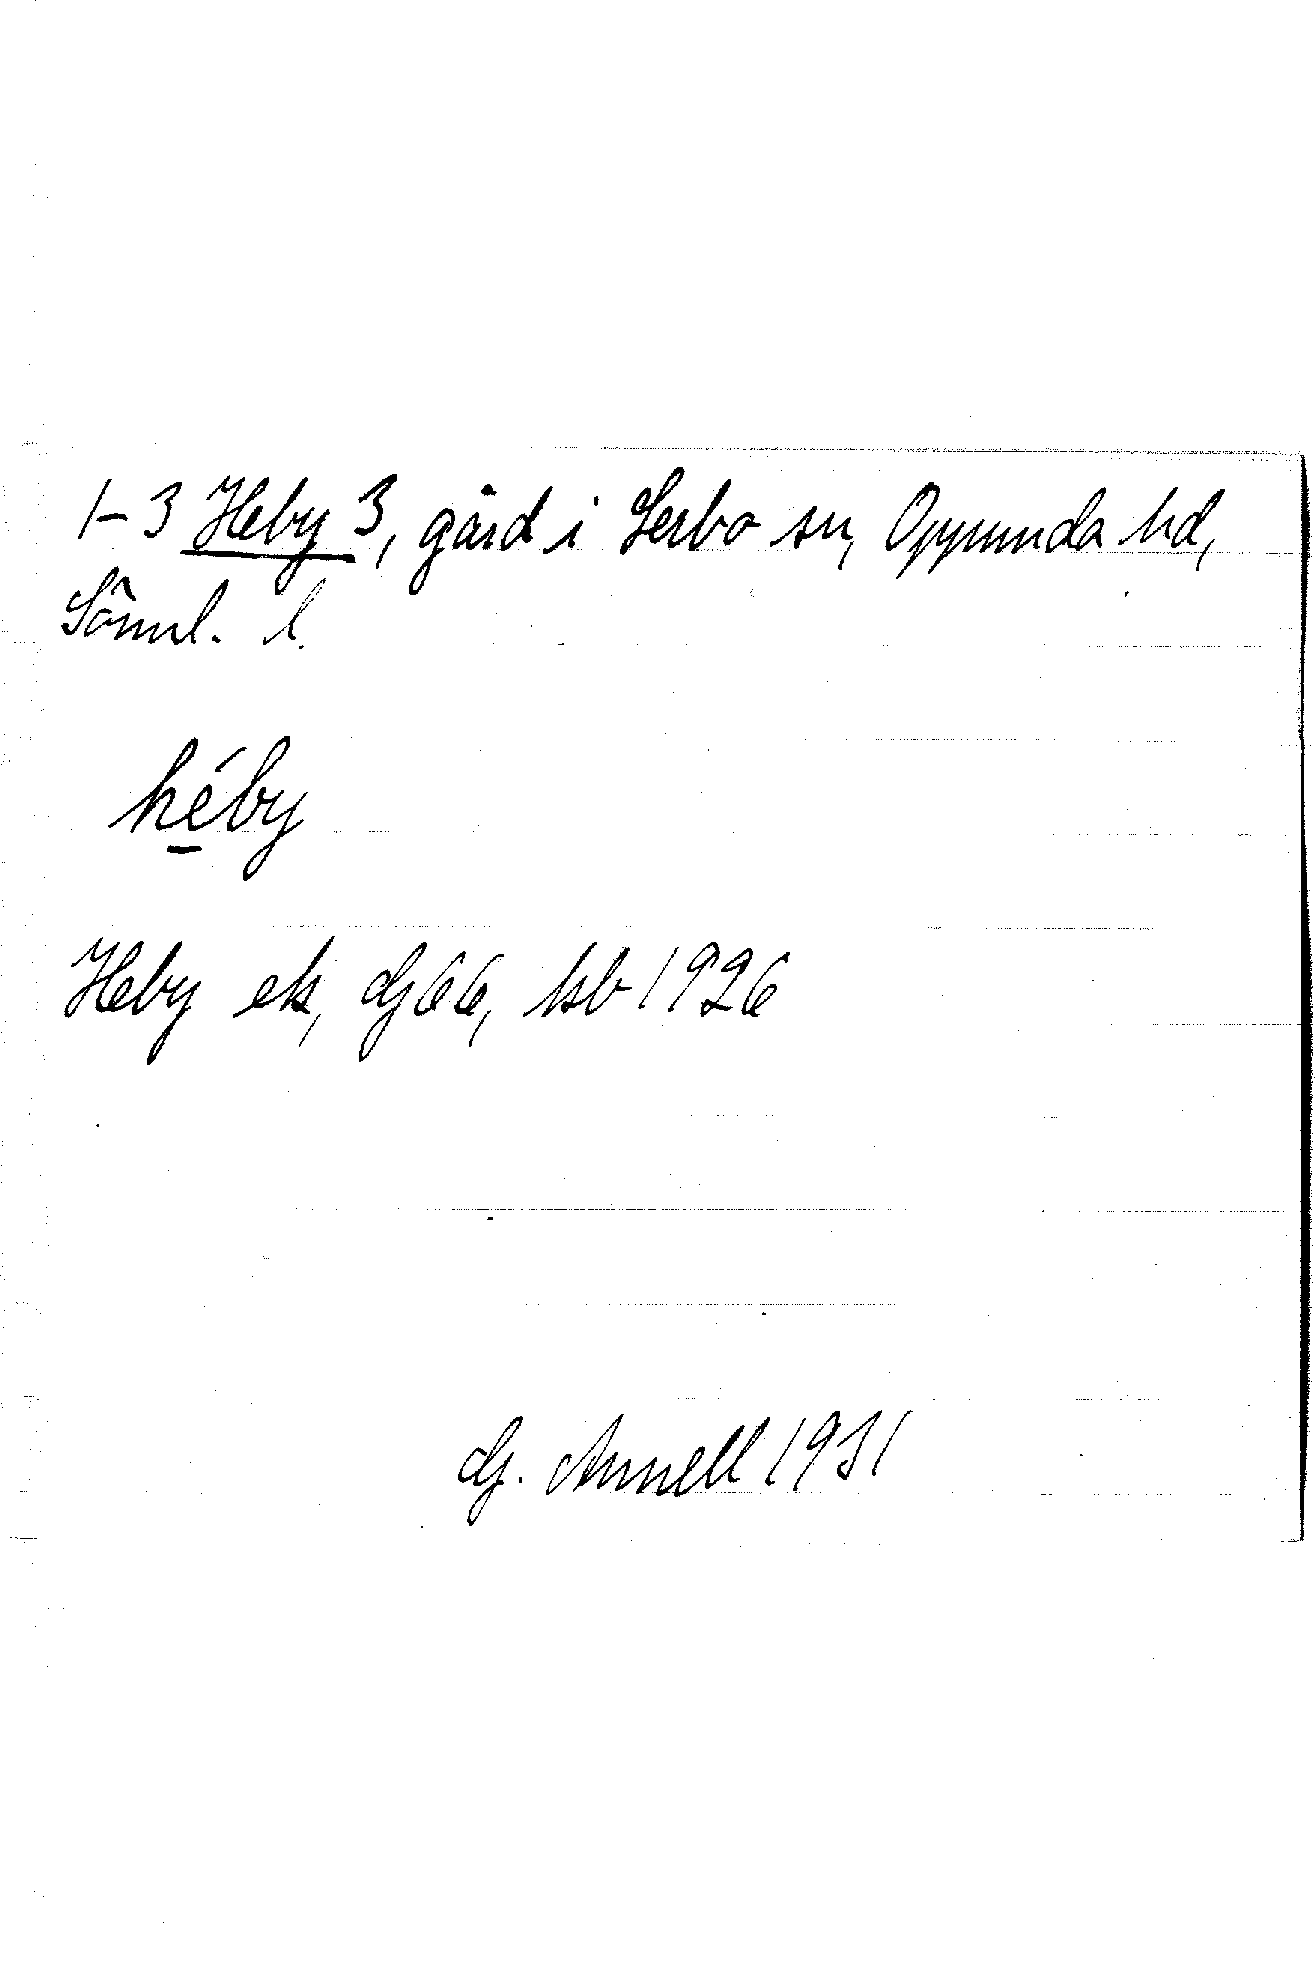 1-3 Heby 3, gård i Lerbo sn, Oppunda hd,
Söml. l.
héby
Heby ek, dj 66, kb 1926
G. Annell 1931